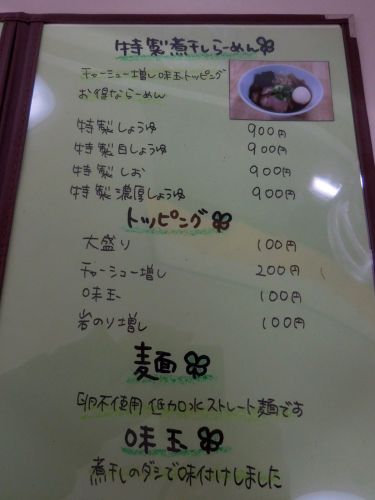 特製煮干しらーめん
チャーシュー増し味玉トッピング
お得ならーめん
特製しょうゆ 900円
特製白しょうゆ 900円
特製しお 900円
特製濃厚しょうゆ 900円
トッピング
大盛り 100円
チャーシュー増し 200円
味玉 100円
岩のり増し 100円
麺
卵不使用 低加水ストレート麺です
味玉
煮干しのダシで味付けしました